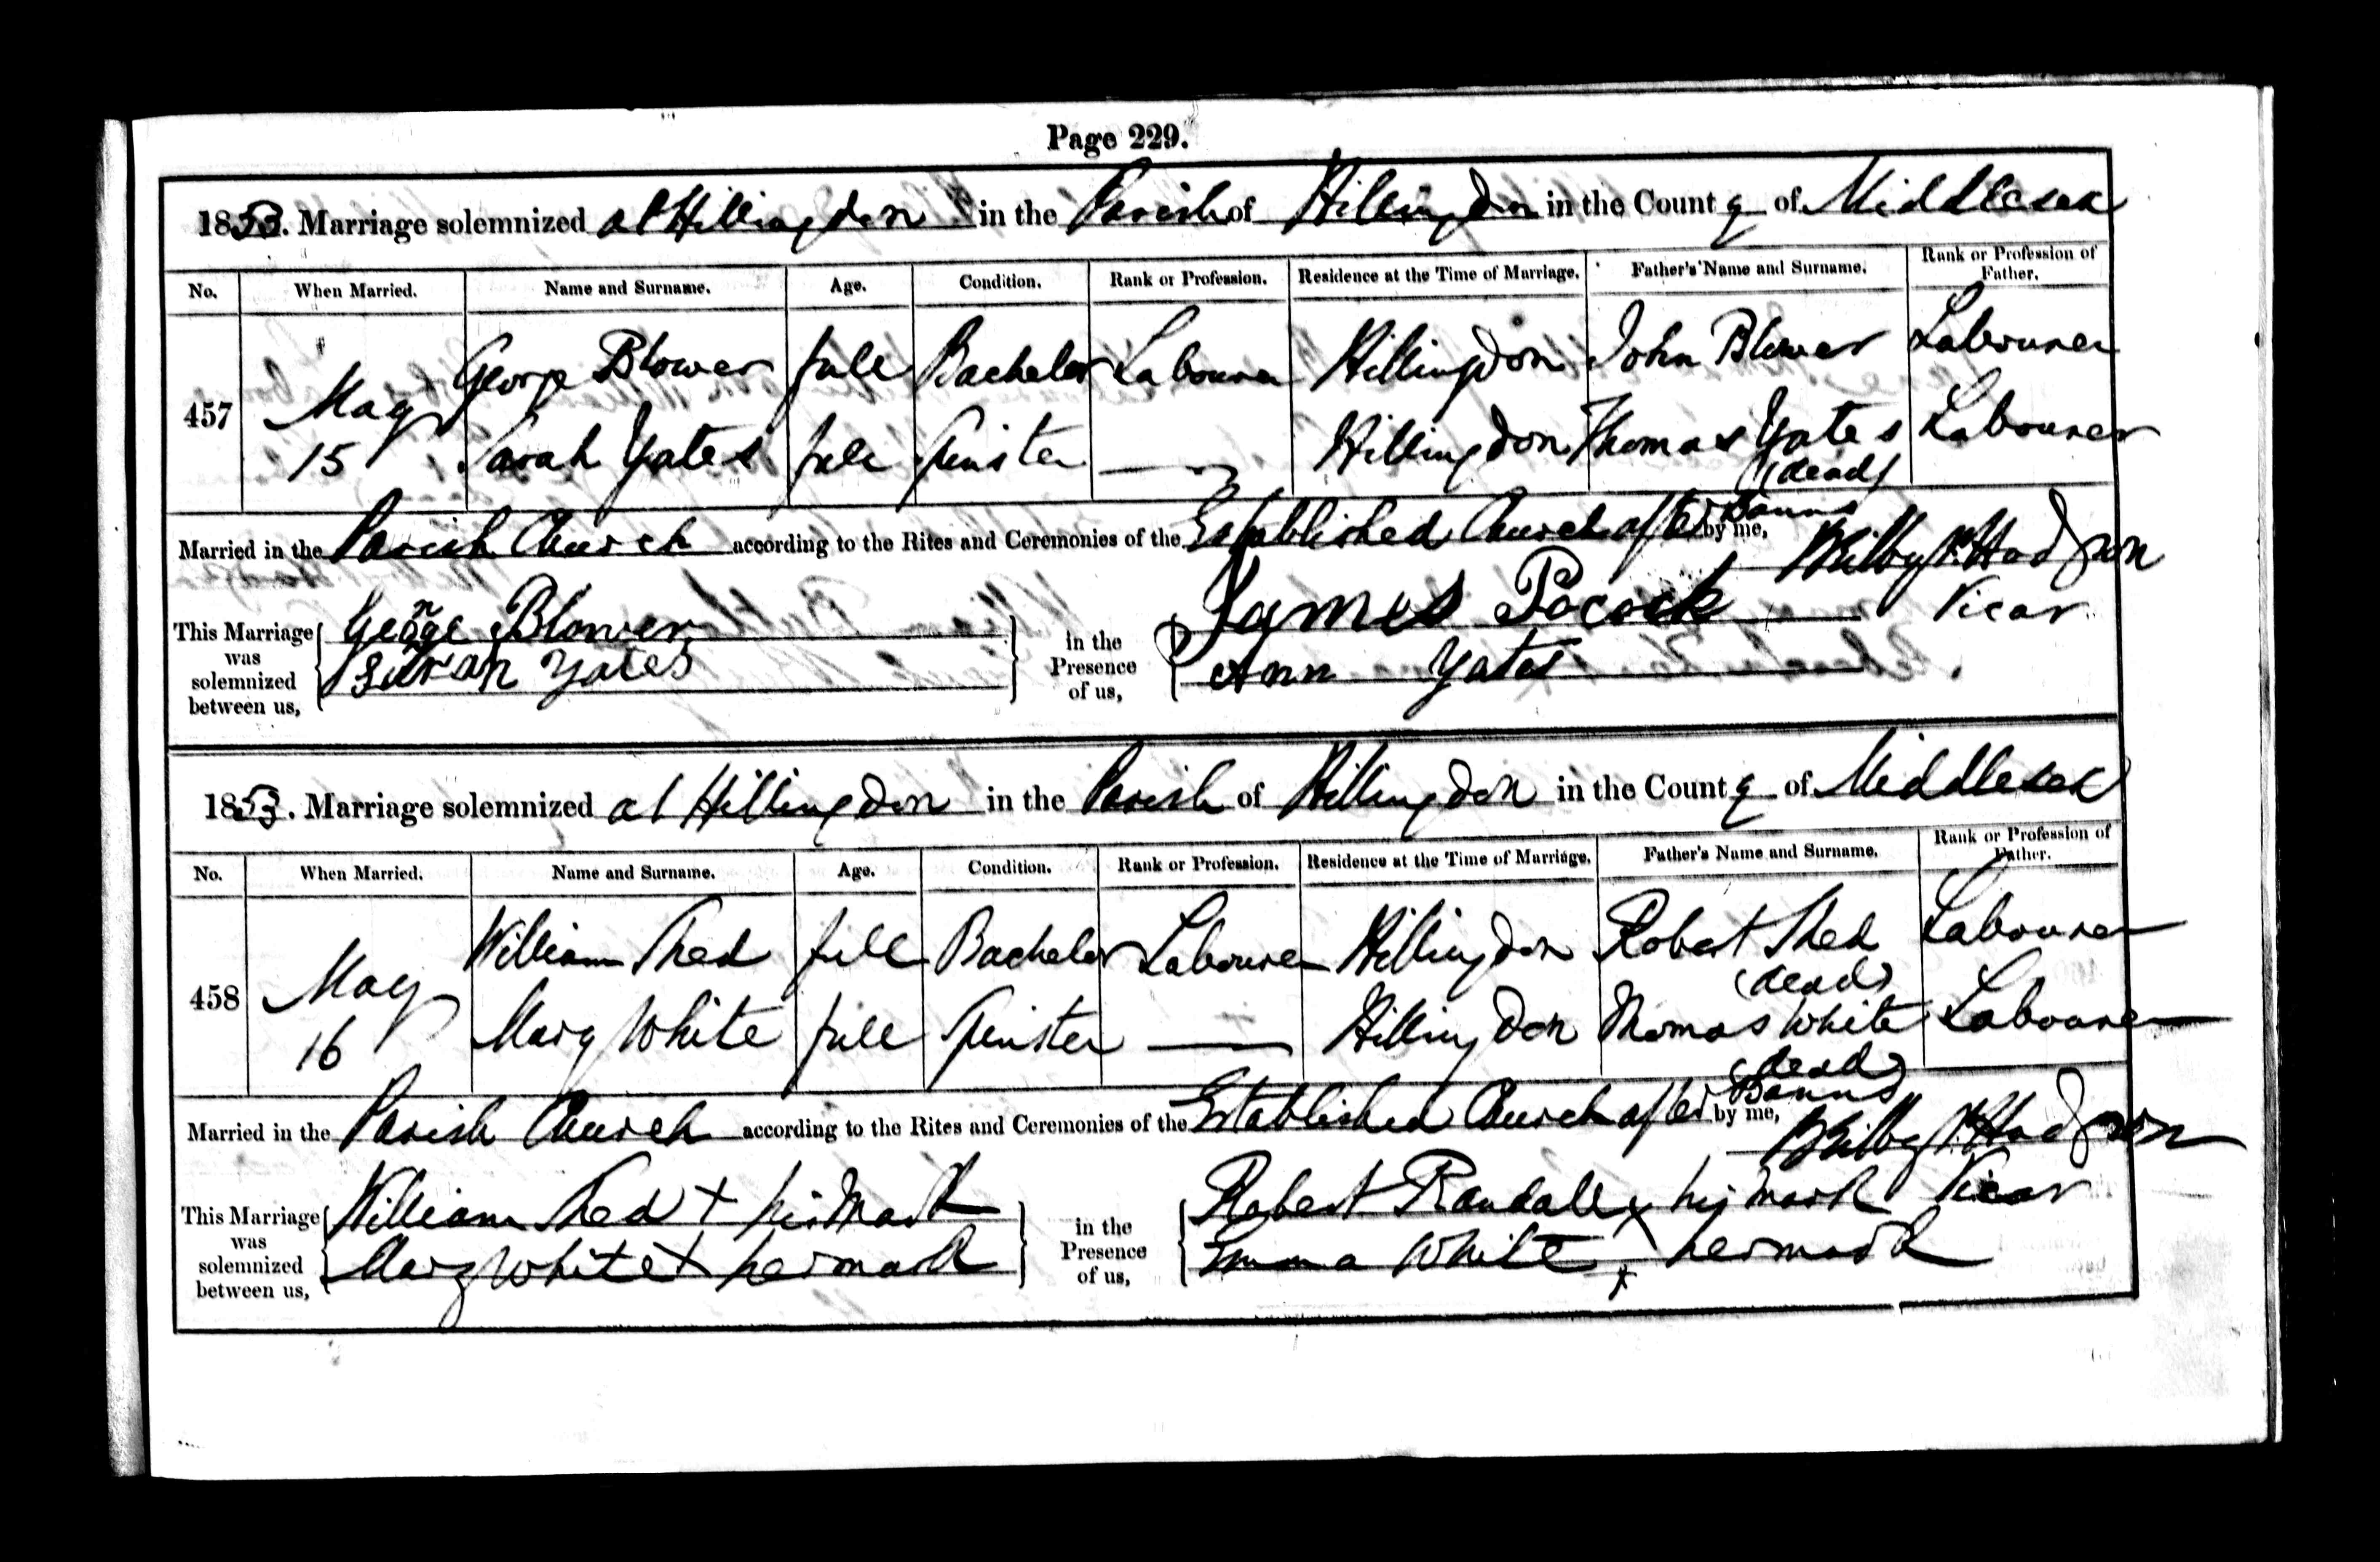 Page 229.
1853. Marriage solemnized at Hillingdon in the Parish of Hillingdon in the County of Middlesex
No. When Married. Name and Surname. Age. Condition. Rank or Profession. Residence at the Time of Marriage. Father's Name and Surname. Rank or Profession of Father.
457 May 15 George Blower full Bachelor Labourer Hillingdon John Blower Labourer
Sarah Yates full Spinster — Hillingdon Thomas Yates (dead) Labourer
Married in the Parish Church according to the Rites and Ceremonies of the Established Church after Banns by me,
Hodgson
Vicar
This Marriage was solemnized between us, George Blower in the Presence of us, James Pocock
Sarah Yates Ann Yates
1853. Marriage solemnized at Hillingdon in the Parish of Hillingdon in the County of Middlesex
No. When Married. Name and Surname. Age. Condition. Rank or Profession. Residence at the Time of Marriage. Father's Name and Surname. Rank or Profession of Father.
458 May 16 William Shed full Bachelor Labourer Hillingdon Robert Shed (dead) Labourer
Mary White full Spinster — Hillingdon Thomas White (dead) Labourer
Married in the Parish Church according to the Rites and Ceremonies of the Established Church after Banns by me,
Hodgson
Vicar
This Marriage was solemnized between us, William Shed + his mark in the Presence of us, Robert Randall x his mark
Mary White + her mark Emma White x her mark